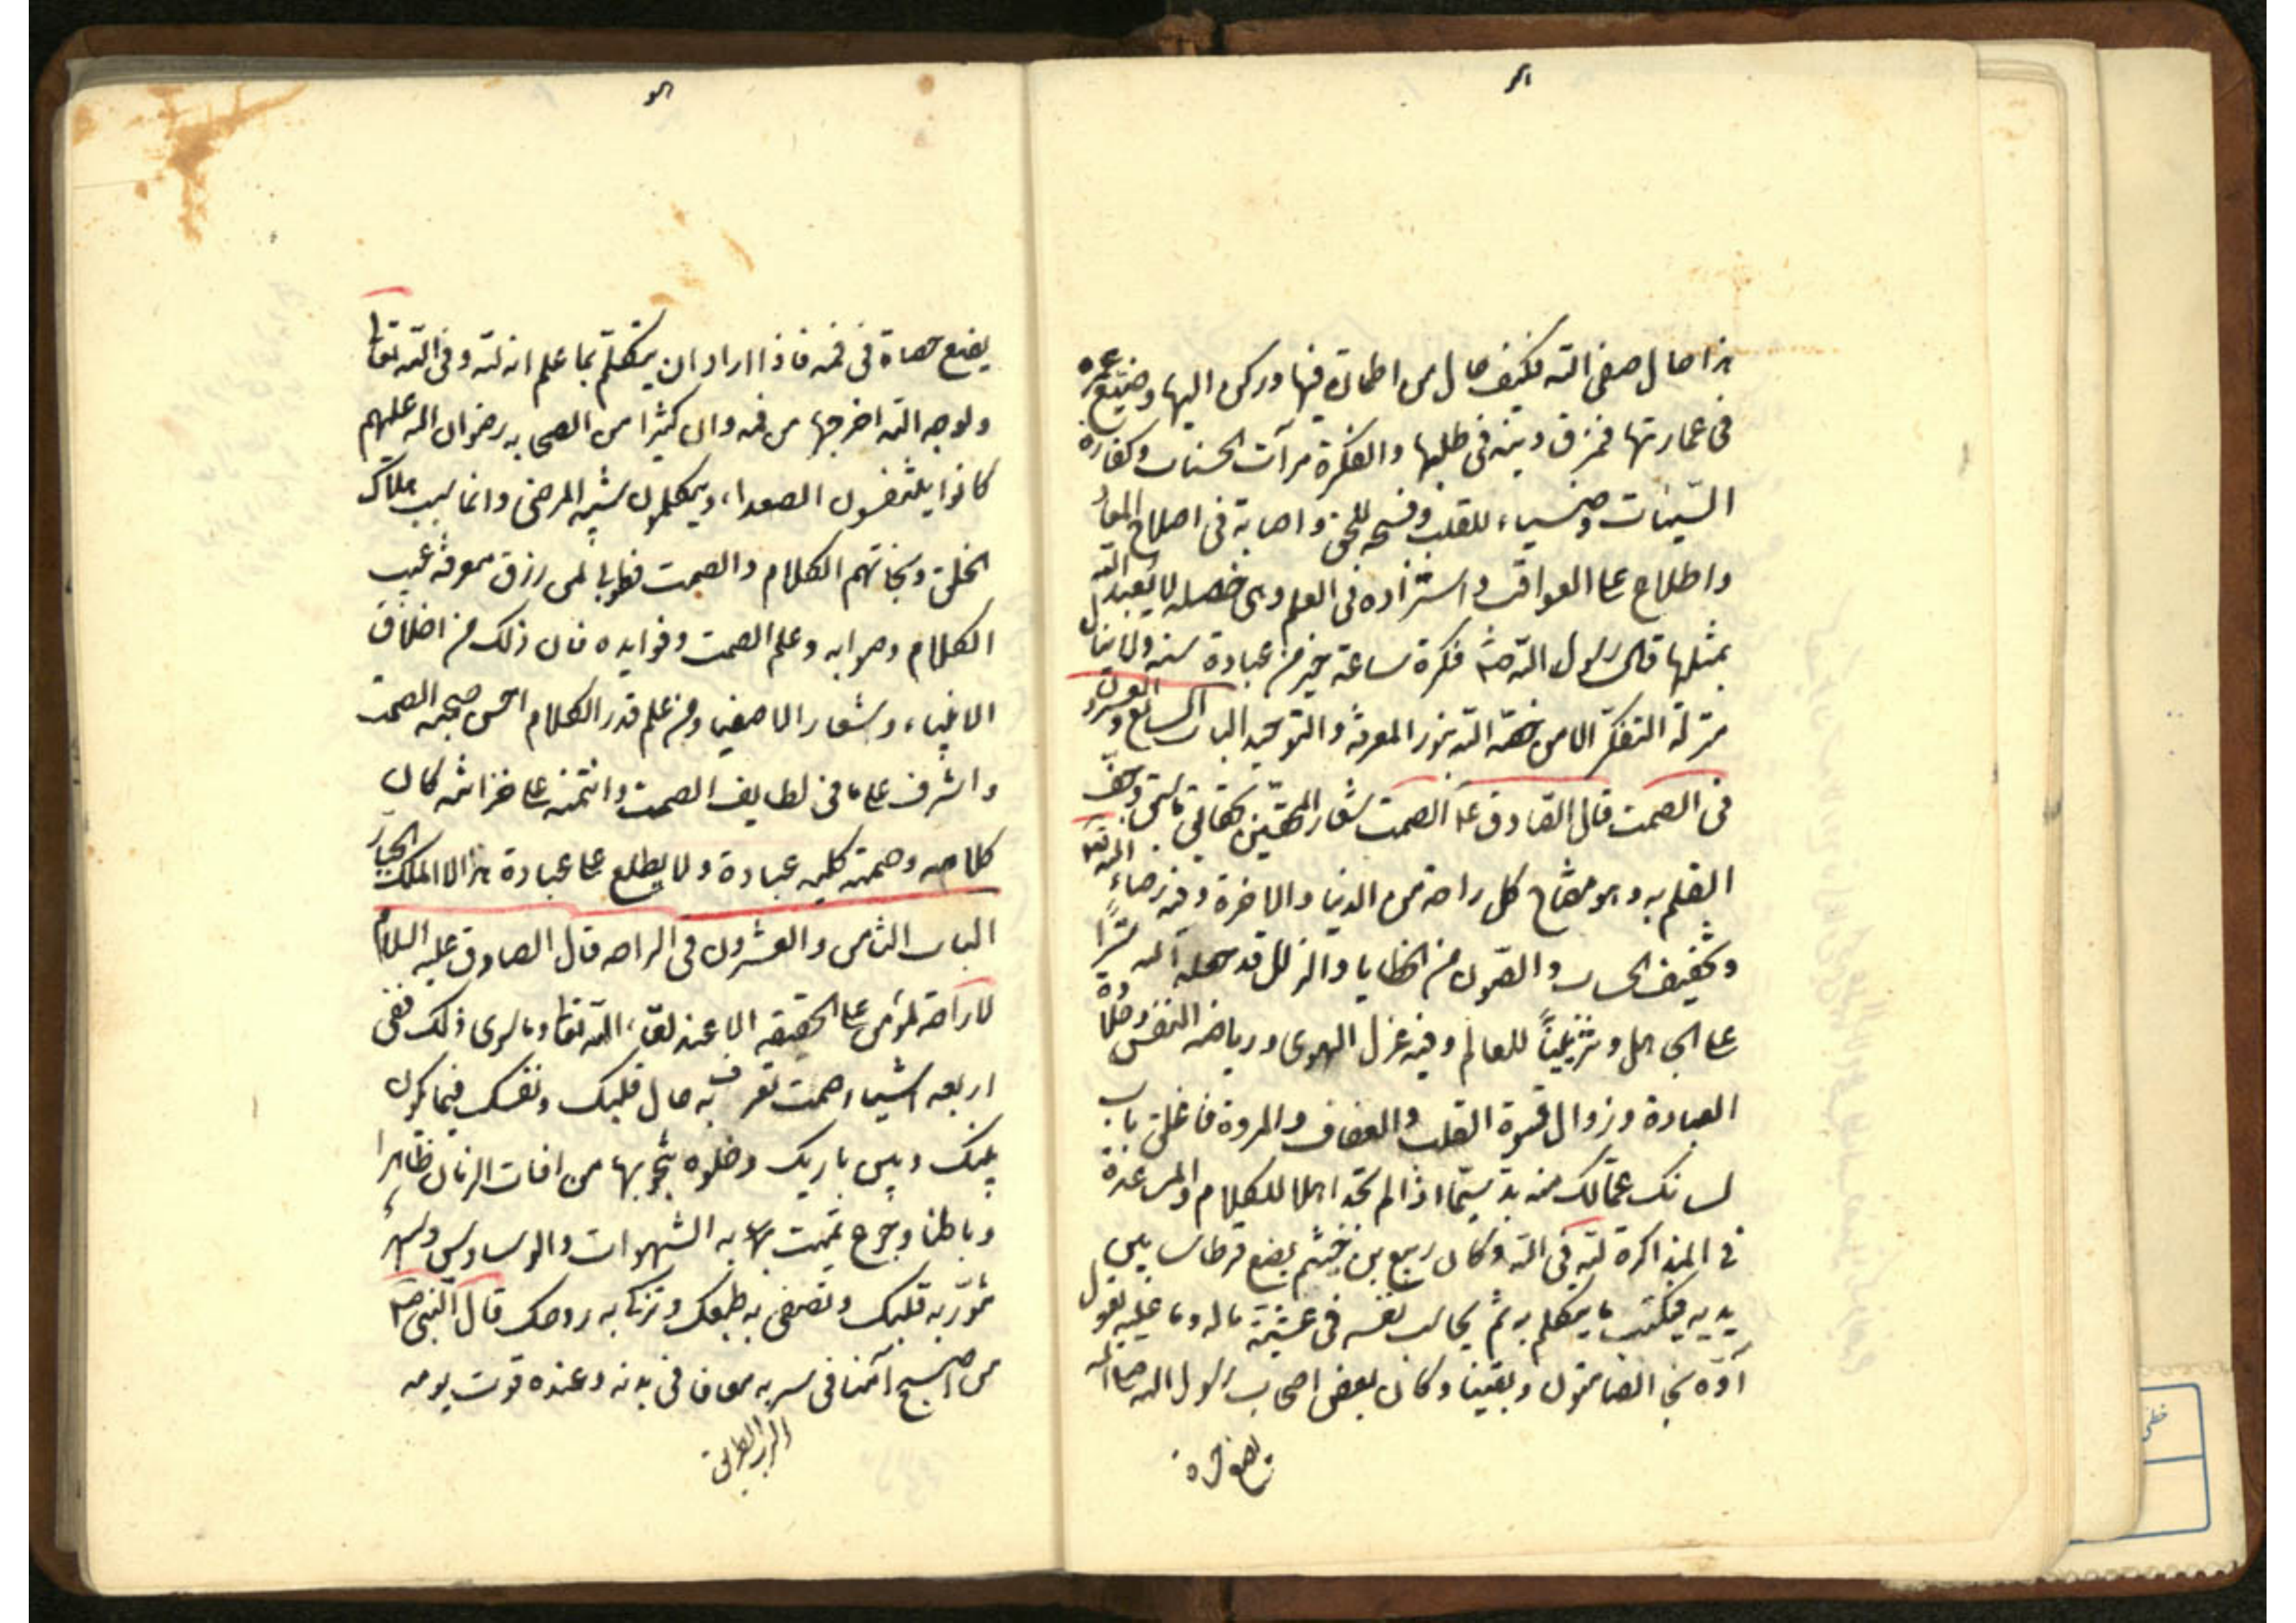 هذا حال صفی الله فکیف حال من اطمان فیها ورکن الیها وضیّع عمره
فی عمارتها فمزق دینه فی طلبها والفکرة مرآت الحسنات وکفارة
السّیئات وضیاء للقلب وفسحه للخلق واصابة فی اصلاح المعاد
واطلاع علی العواقب واستزاده فی العلم وهی خصله لا یُعبد الله
بمثلها قال رسول اللّه صلی فکرة ساعة خیر من عبادة سنه ولا ینال
منزلة التفکر الا من خصّه اللّه بنور المعرفة والتوحید الباب السابع والعشرون
فی الصمت قال الصّادق ع الصمت شعار المحققین بحقائق ما سبق وجفّ
القلم به وهو مفتاح کل راحة من الدنیا والاخرة وفیه رضاء اللّه
وتخفیف الحساب والصّون من الخطایا والزلل قد جعله اللّه سترًا
علی الجاهل وتزیینًا للعالم وفیه عزل الهوی وریاضه النفس وحلاوة
العبادة وزوال قسوة القلب والعفاف والمروة فاغلق باب
لسانک عمّا لک منه بد سیّما اذا لم تجد اهلا للکلام والمساعدة
فی المذاکرة للّه فی اللّه وکان ربیع بن خیثم یضع قرطاسا بین
یدیه فیکتب ما یتکلم به ثم یحاسب نفسه فی عشیّته ماله وما علیه یقول
آوّه نجا الصامتون وبقینا وکان بعض اصحاب رسول الله صلی الله
یضع حصاة فی فمه فاذا اراد ان یتکلّم بما علم انه للّه وفی اللّه تعا
ولوجه اللّه اخرجها من فمه وان کثیرا من الصحابه رضوان الله علیهم
کانوا یتنفسون الصعداء ویتکلمون شبیه المرضی وانما سبب هلاک
الخلق ونجاتهم الکلام والصمت فطوبا لمن رزق معرفة عیب
الکلام وصوابه وعلم الصمت وفوایده فان ذلک من اخلاق
الانبیاء وشعار الاصفیا ومن علم قدر الکلام احسن صحبه الصمت
واشرف علی ما فی لطایف الصمت وائتمنه علی خزائنه کان
کلامه وصمته کلیه عبادة ولا یطلع علی عبادة هذا الا الملک الجبار
الباب الثامن والعشرون فی الراحه قال الصادق علیه السلام
لا راحة لمؤمن علی الحقیقه الا عند لقاء اللّه تعا وما سوی ذلک ففی
اربعه اشیاء صمت تعرف به حال قلبک ونفسک فیما یکون
بینک وبین باریک وخلوه تنجو بها من افات الزمان ظاهرا
وباطنا وجوع تمیت به الشهوات والوساوس وسهر
تنوّر به قلبک وتصفی به طبعک وتزکا به روحک قال النبی ص
من اصبح آمنا فی سربه معاف فی بدنه وعنده قوت یومه